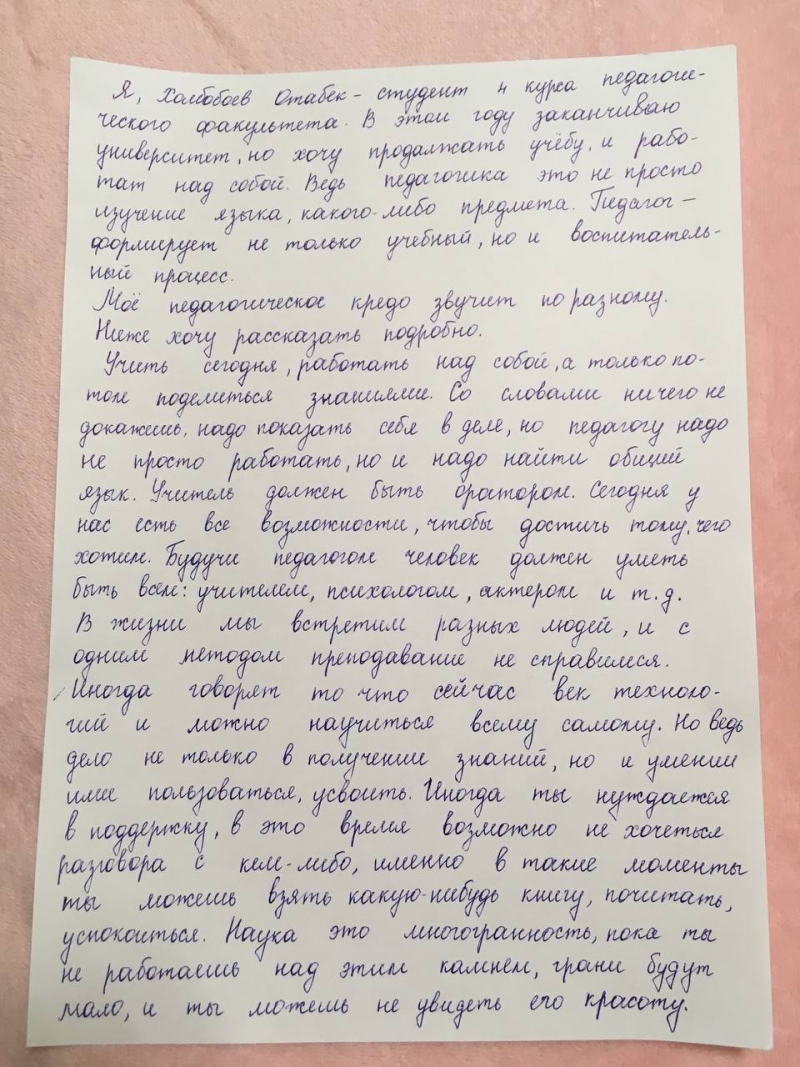 Я, Холбобоев Отабек - студент 4 курса педагоги-
ческого факультета. В этом году заканчиваю
университет, но хочу продалжать учёбу, и рабо-
тат над собой. Ведь педагогика это не просто
изучение языка, какого-либо предмета. Педагог -
формирует не только учебный, но и воспитатель-
ный процесс.
Моё педагогическое кредо звучит по разному.
Ниже хочу рассказать подробно.
Учить сегодня, работать над собой, а только по-
том поделиться знаниями. Со словами ничего не
докажешь, надо показать себя в деле, но педагогу надо
не просто работать, но и надо найти общий
язык. Учитель должен быть оратором. Сегодня у
нас есть все возможности, чтобы достичь тому, чего
хотим. Будучи педагогом человек должен уметь
быть всем: учителем, психологом, актером и т.д.
В жизни мы встретим разных людей, и с
одним методом преподавание не справимся.
Иногда говорят то что сейчас век техноло-
гий и можно научиться всему самому. Но ведь
дело не только в получении знаний, но и умении
ими пользоваться, усвоить. Иногда ты нуждается
в поддержку, в это время возможно не хочеться
разговора с кем-либо, именно в такие моменты
ты можешь взять какую-нибудь книгу, почитать,
успокоиться. Наука это многогранность, пока ты
не работаешь над этим камнем, грани будут
мало, и ты можешь не увидеть его красоту.